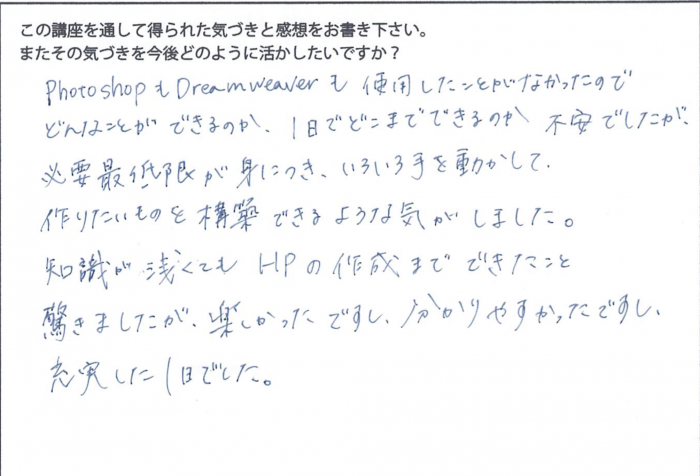 この講座を通して得られた気づきと感想をお書き下さい。
またその気づきを今後どのように活かしたいですか？
PhotoshopもDreamweaverも使用したことがなかったので
どんなことができるのか、1日でどこまでできるのか不安でしたが、
必要最低限が身につき、いろいろ手を動かして、
作りたいものを構築できるような気がしました。
知識が浅くてもHPの作成までできたこと
驚きましたが、楽しかったですし、分かりやすかったですし、
充実した1日でした。